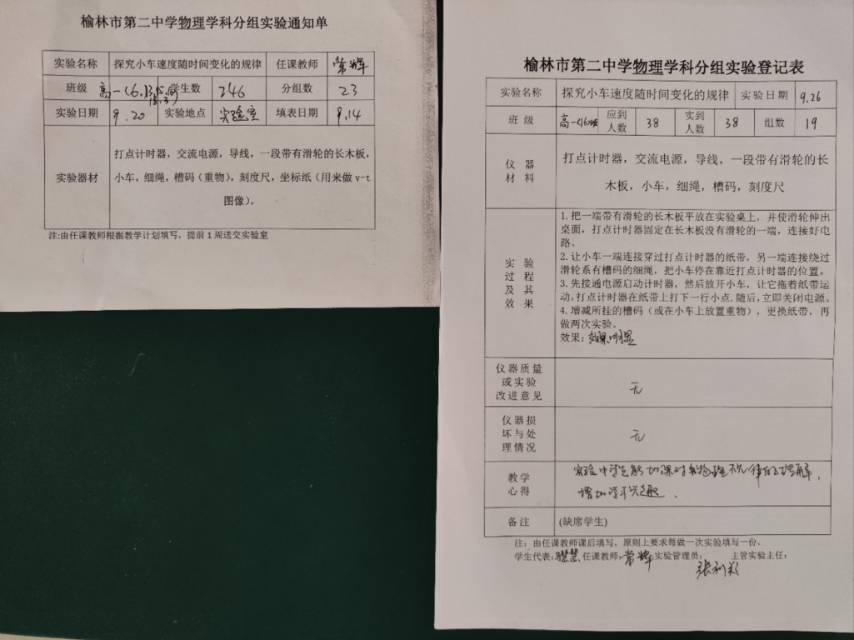 榆林市第二中学物理学科分组实验通知单
实验名称 探究小车速度随时间变化的规律 任课教师 常辉
班级 高一 学生数 246 分组数 23
实验日期 9.20 实验地点 实验室 填表日期 9.14
实验器材
打点计时器，交流电源，导线，一段带有滑轮的长木板，
小车，细绳，槽码（重物），刻度尺，坐标纸（用来做 v-t
图像）。
注:由任课教师根据教学计划填写，提前 1 周送交实验室
榆林市第二中学物理学科分组实验登记表
实验名称 探究小车速度随时间变化的规律 实验日期 9.26
班 级 高一 应到人数 38 实到人数 38 组数 19
仪 器
材 料
打点计时器，交流电源，导线，一段带有滑轮的长
木板，小车，细绳，槽码，刻度尺
实 验
过 程
及 其
效 果
1.把一端带有滑轮的长木板平放在实验桌上，并使滑轮伸出
桌面，打点计时器固定在长木板没有滑轮的一端，连接好电
路。
2.让小车一端连接穿过打点计时器的纸带，另一端连接绕过
滑轮系有槽码的细绳，把小车停在靠近打点计时器的位置。
3.先接通电源启动计时器，然后放开小车，让它拖着纸带运
动，打点计时器在纸带上打下一行小点.随后，立即关闭电源。
4.增减所挂的槽码（或在小车上放置重物），更换纸带，再
做两次实验。
效果：效果明显
仪器质量
或实验
改进意见
无
仪器损
坏与处
理情况
无
教学
心得
实验中学生能加深对物理规律的理解，
增加学习兴趣.
备注 (缺席学生)
注：由任课教师课后填写，原则上要求每做一次实验填写一份。
学生代表： 任课教师：常辉 实验管理员： 主管实验主任：